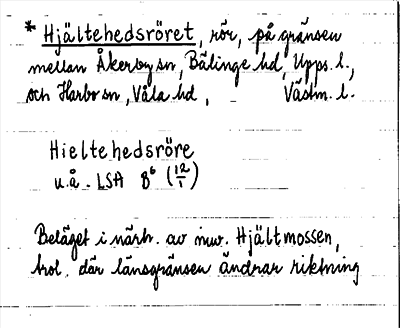 * Hjältehedsröret, rör, på gränsen
mellan Åkerby sn, Bälinge hd, Upps. l.,
och Harbo sn, Våla hd, Västm. l.
Hieltehedsröre
u.å. LSA B⁶ (12/1)
Beläget i närh. av nuv. Hjältmossen,
trol. där länsgränsen ändrar riktning